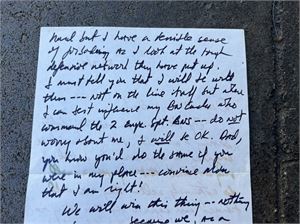 hard but I have a terrible sense
of foreboding as I look at the tough
defensive network they have put up.
I must tell you that I will be with
them --- not on the line itself but where
I can best influence my Bn Cmdrs who
command the 2 Engr. Spt. Bns -- do not
worry about me, I will be OK. Dad,
you know you'd do the same if you
were in my place --- convince Mom
that I am right!
We will win this thing -- nothing
because we, as a